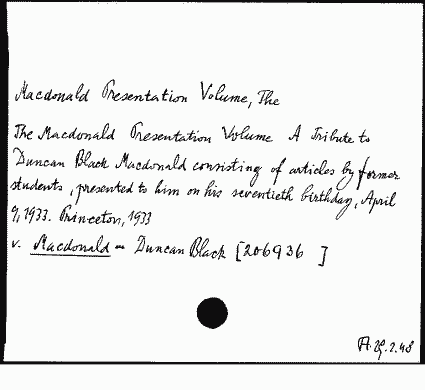 Macdonald Presentation Volume, The
The Macdonald Presentation Volume A Tribute to
Duncan Black Macdonald consisting of articles by former
students, presented to him on his seventieth birthday, April
9, 1933. Princeton, 1933
v. Macdonald – Duncan Black [206936 ]
A. 29.2.48